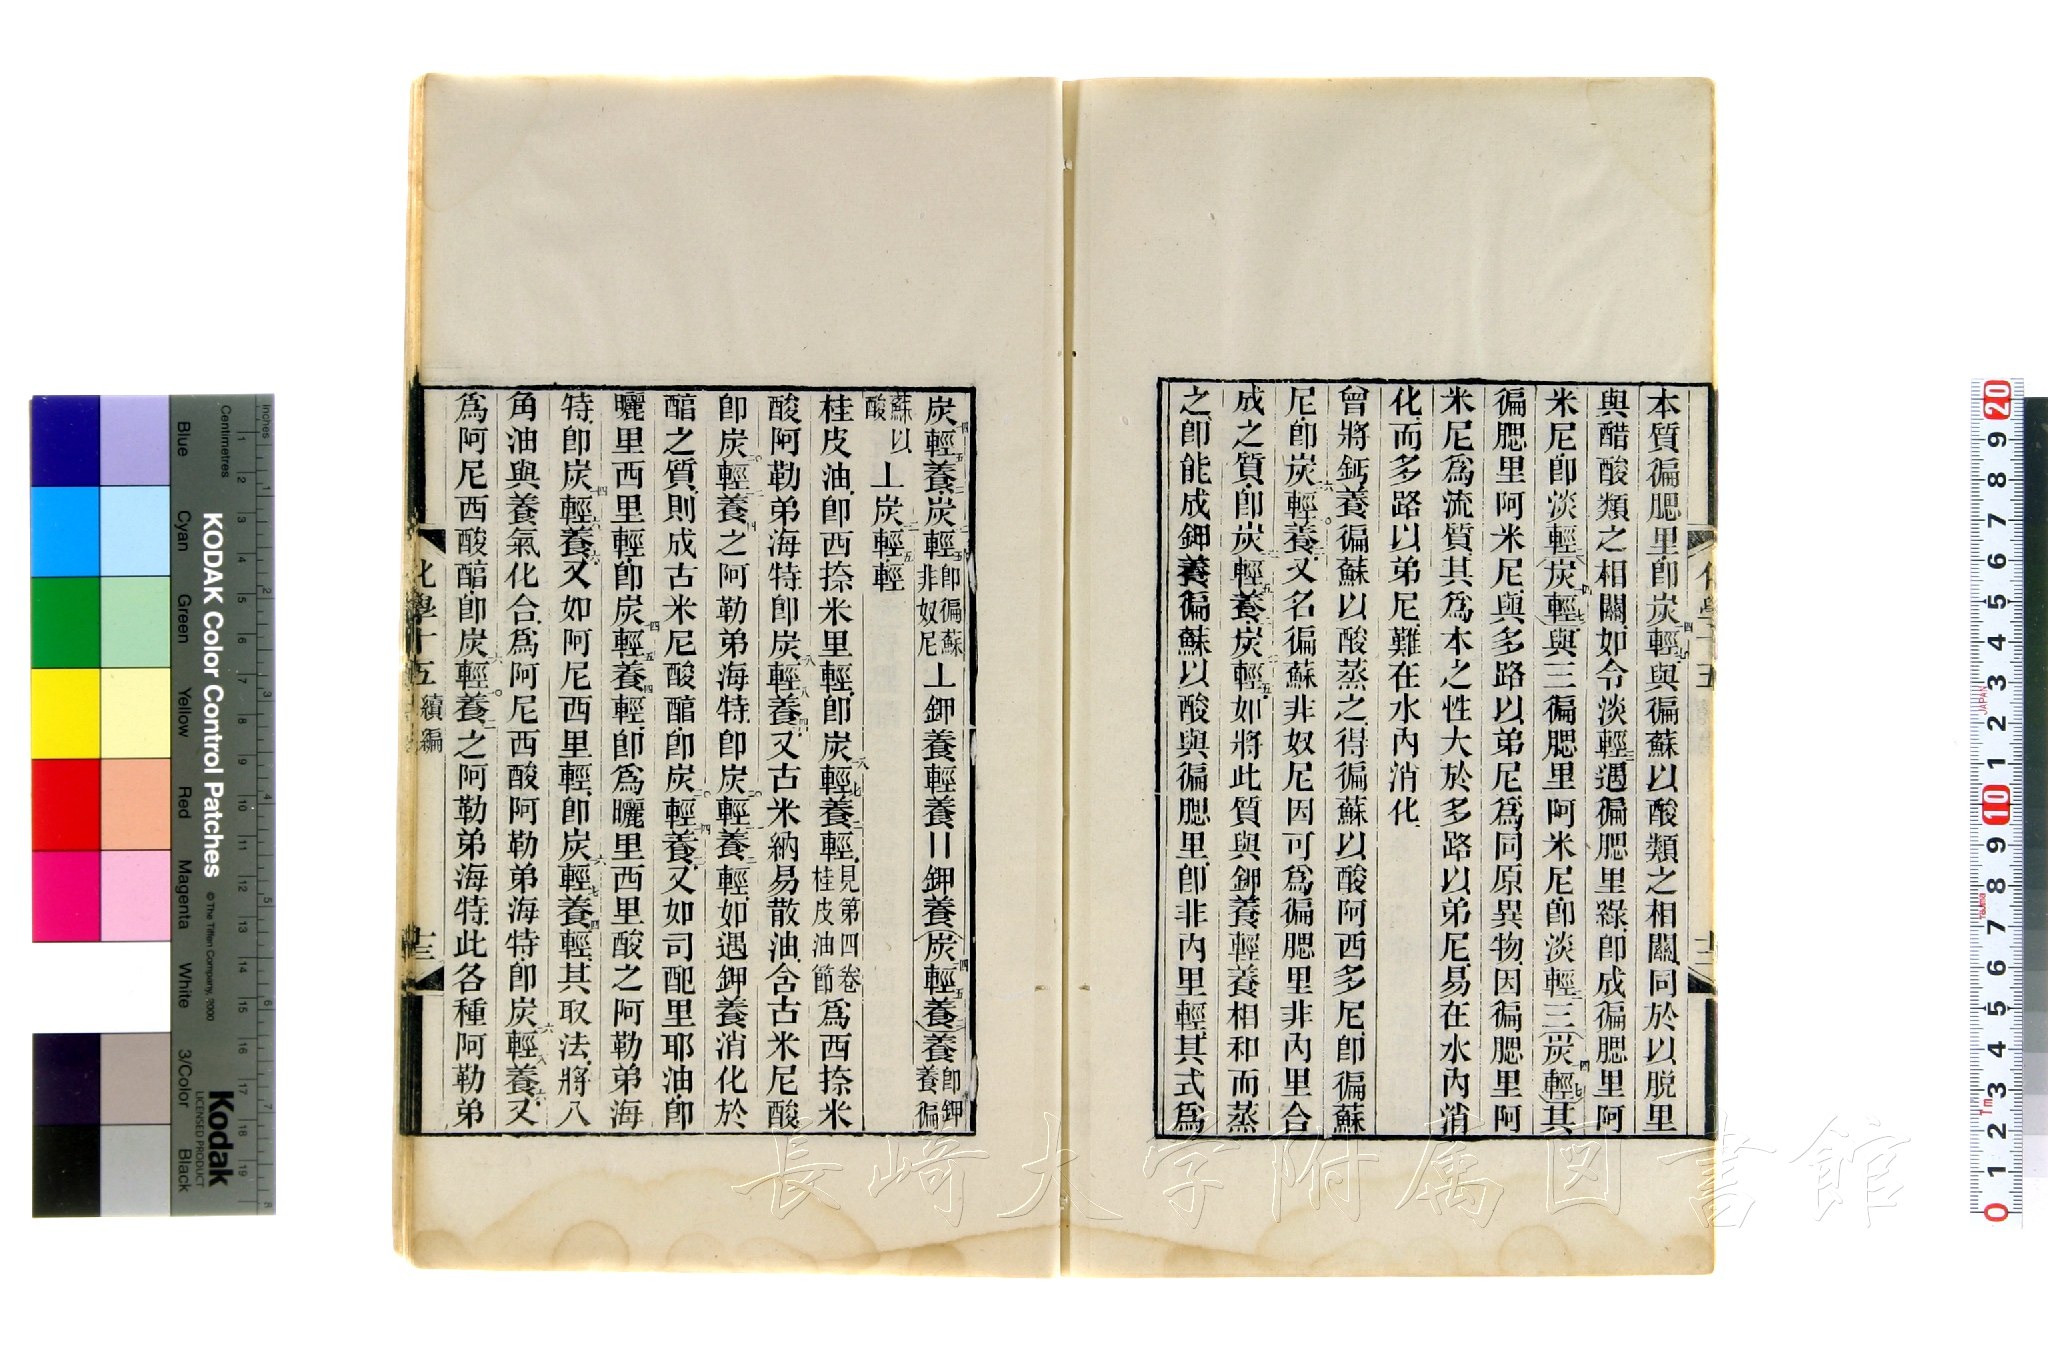 本質徧腮里、卽炭四輕七與徧蘇以酸類之相關、同於以脫里
與醋酸類之相關、如令淡輕三遇徧腮里綠、卽成徧腮里阿
米尼、卽淡輕二(炭四輕七)與三徧腮里阿米尼、卽淡輕三三(炭四輕七)其
徧腮里阿米尼、與多路以弟尼、爲同原異物、因徧腮里阿
米尼爲流質、其爲本之性大於多路以弟尼、易在水內消
化、而多路以弟尼、難在水內消化、
曾將鈣養徧蘇以酸蒸之、得徧蘇以酸阿西多尼、卽徧蘇
尼、卽炭六輕○養二、又名徧蘇非奴尼、因可爲徧腮里非內里合
成之質、卽炭輕五養二炭二輕五、如將此質與鉀養輕養相和而蒸
之、卽能成鉀養徧蘇以酸、與徧腮里、卽非內里輕、其式爲
化學十五
炭四輕五養二炭二輕五卽徧蘇非奴尼⊥鉀養輕養=鉀養(炭四輕五養二)養卽鉀養徧
蘇以酸⊥炭二輕五輕
桂皮油、卽西捺米里輕、卽炭八輕七養二輕、見第四卷桂皮油節爲西捺米
酸阿勒弟海特、卽炭八輕八養四、又古米納易散油、含古米尼酸
卽炭○輕二養四之阿勒弟海特、卽炭○輕二養二輕、如遇鉀養消化於
醕之質、則成古米尼酸醕、卽炭○輕四養二、又如司配里耶油、卽
曬里西里輕、卽炭四輕五養四輕、卽爲曬里西里酸之阿勒弟海
特、卽炭四輕六養六、又如阿尼西里輕、卽炭六輕七養四輕、其取法、將八
角油與養氣化合、爲阿尼西酸阿勒弟海特、卽炭六輕八養六、又
爲阿尼西酸醕、卽炭六輕○養二之阿勒弟海特、此各種阿勒弟
化學十五 續編
十三
KODAK Color Control Patches
© The Tiffen Company, 2000
Kodak
LICENSED PRODUCT
Blue Cyan Green Yellow Red Magenta White 3/Color Black
Inches
Centimetres
長崎大学附属図書館